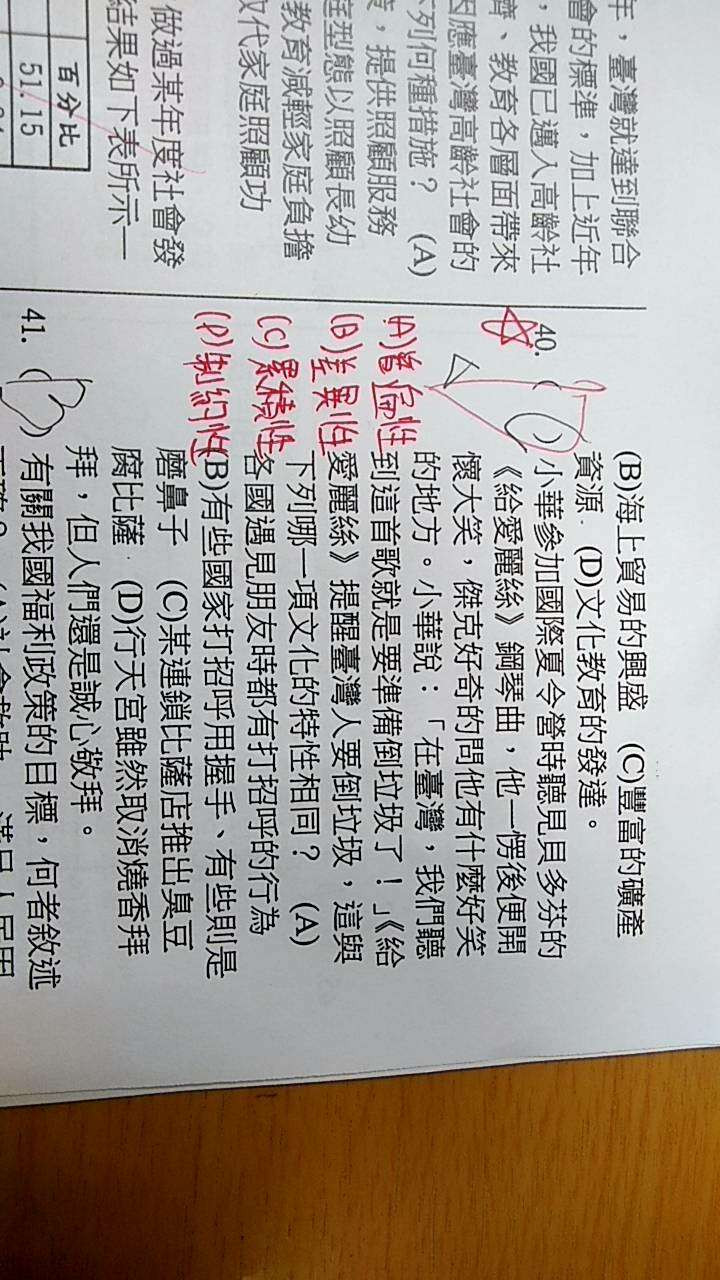 年，臺灣就達到聯合
會的標準，加上近年
，我國已邁入高齡社
濟、教育各層面帶來
因應臺灣高齡社會的
下列何種措施？ (A)
，提供照顧服務
庭型態以照顧長幼
教育減輕家庭負擔
取代家庭照顧功
做過某年度社會發
結果如下表所示—
百分比
51.15
(B)海上貿易的興盛 (C)豐富的礦產
資源 (D)文化教育的發達。
40. ( ) 小華參加國際夏令營時聽見貝多芬的
《給愛麗絲》鋼琴曲，他一愣後便開
懷大笑，傑克好奇的問他有什麼好笑
的地方。小華說：「在臺灣，我們聽
到這首歌就是要準備倒垃圾了！」《給
愛麗絲》提醒臺灣人要倒垃圾，這與
下列哪一項文化的特性相同？ (A)
各國遇見朋友時都有打招呼的行為
(B)有些國家打招呼用握手、有些則是
磨鼻子 (C)某連鎖比薩店推出臭豆
腐比薩 (D)行天宮雖然取消燒香拜
拜，但人們還是誠心敬拜。
(A)普遍性
(B)差異性
(C)累積性
(D)制約性
41. ( ) 有關我國福利政策的目標，何者敘述